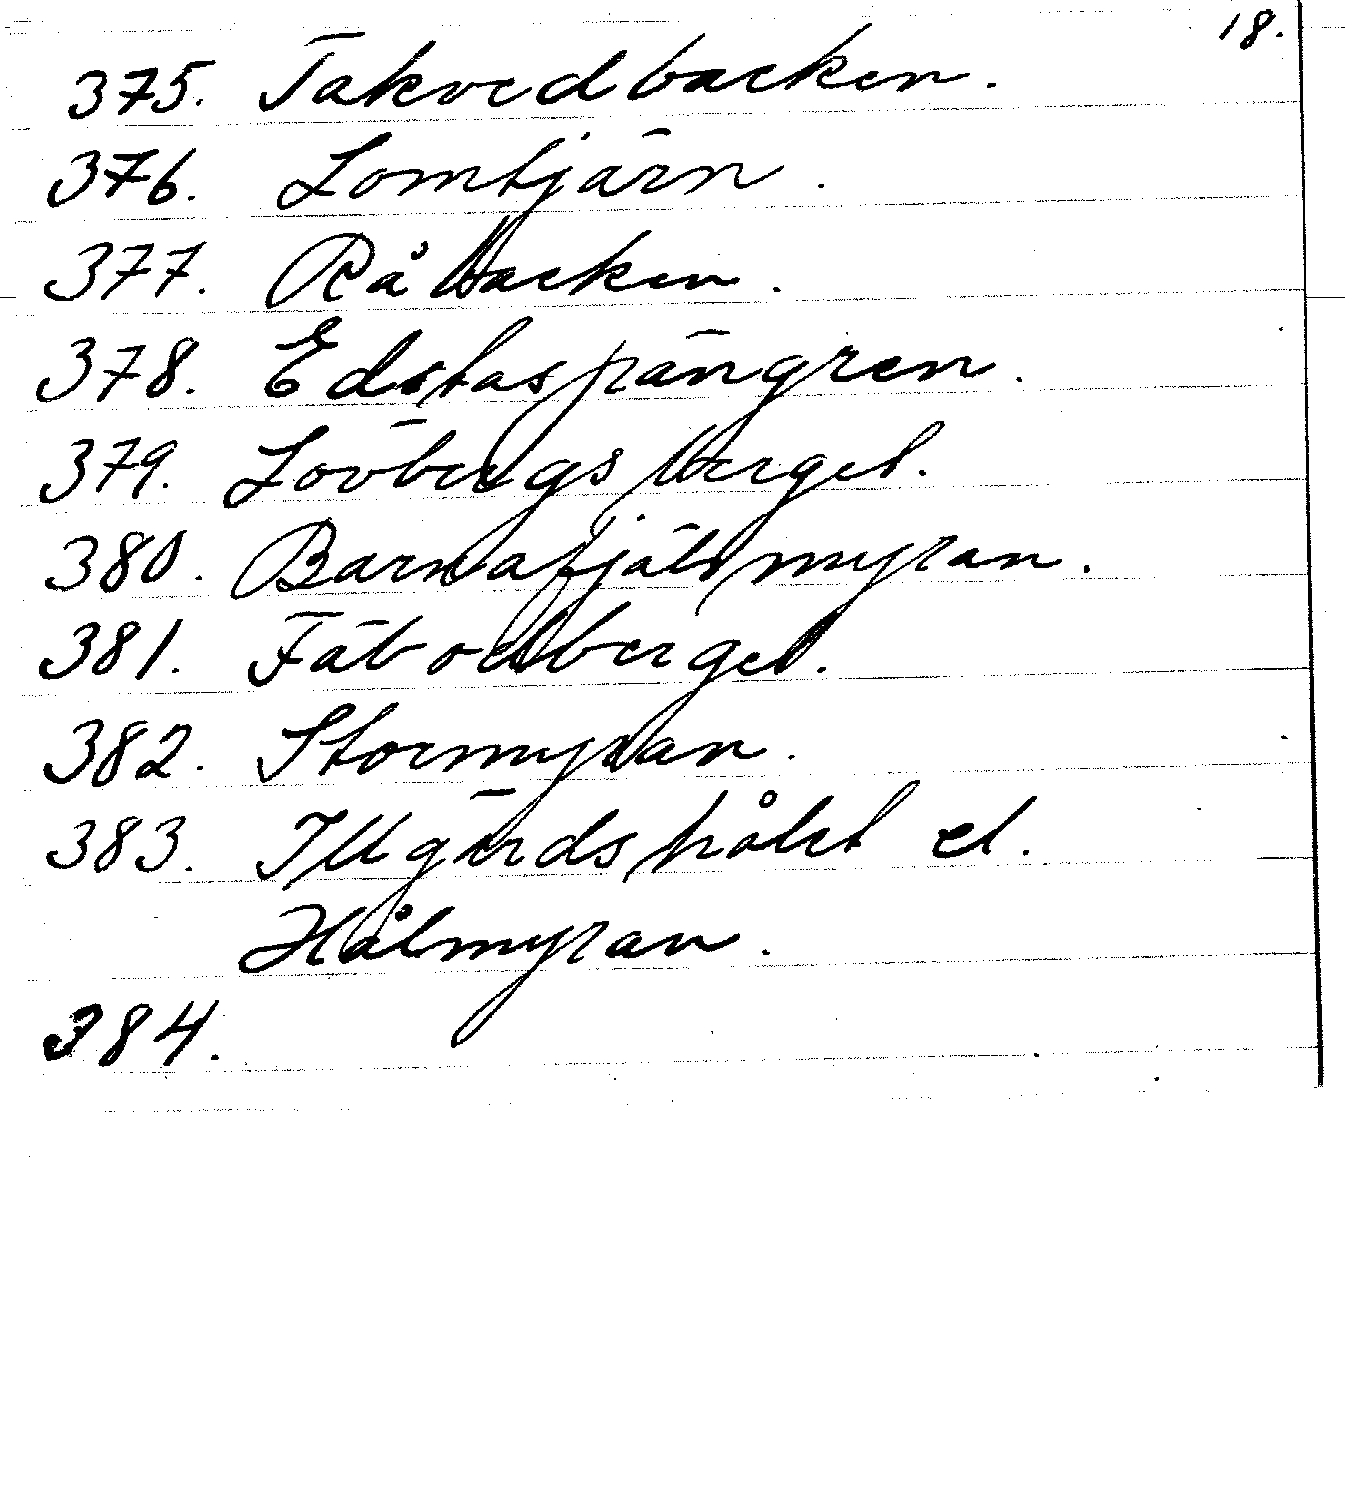 18.
375. Takvedbacken.
376. Lomtjärn.
377. Råbacken.
378. Edstaspängren.
379. Lövbergsberget.
380. Barnafjälsmyran.
381. Fäbodberget.
382. Stormyran.
383. Illgärdshålet el.
Hålmyran.
384.